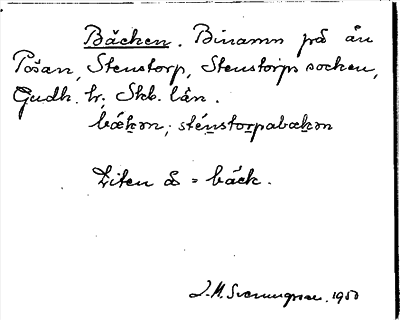 Bäcken. Binamn på ån
Pösan, Stenstorp, Stenstorps socken,
Gudh. hr. Skb. län.
bækən; sténstorpabækən
Liten å = bäck.
J. M. Svenungsson. 1950